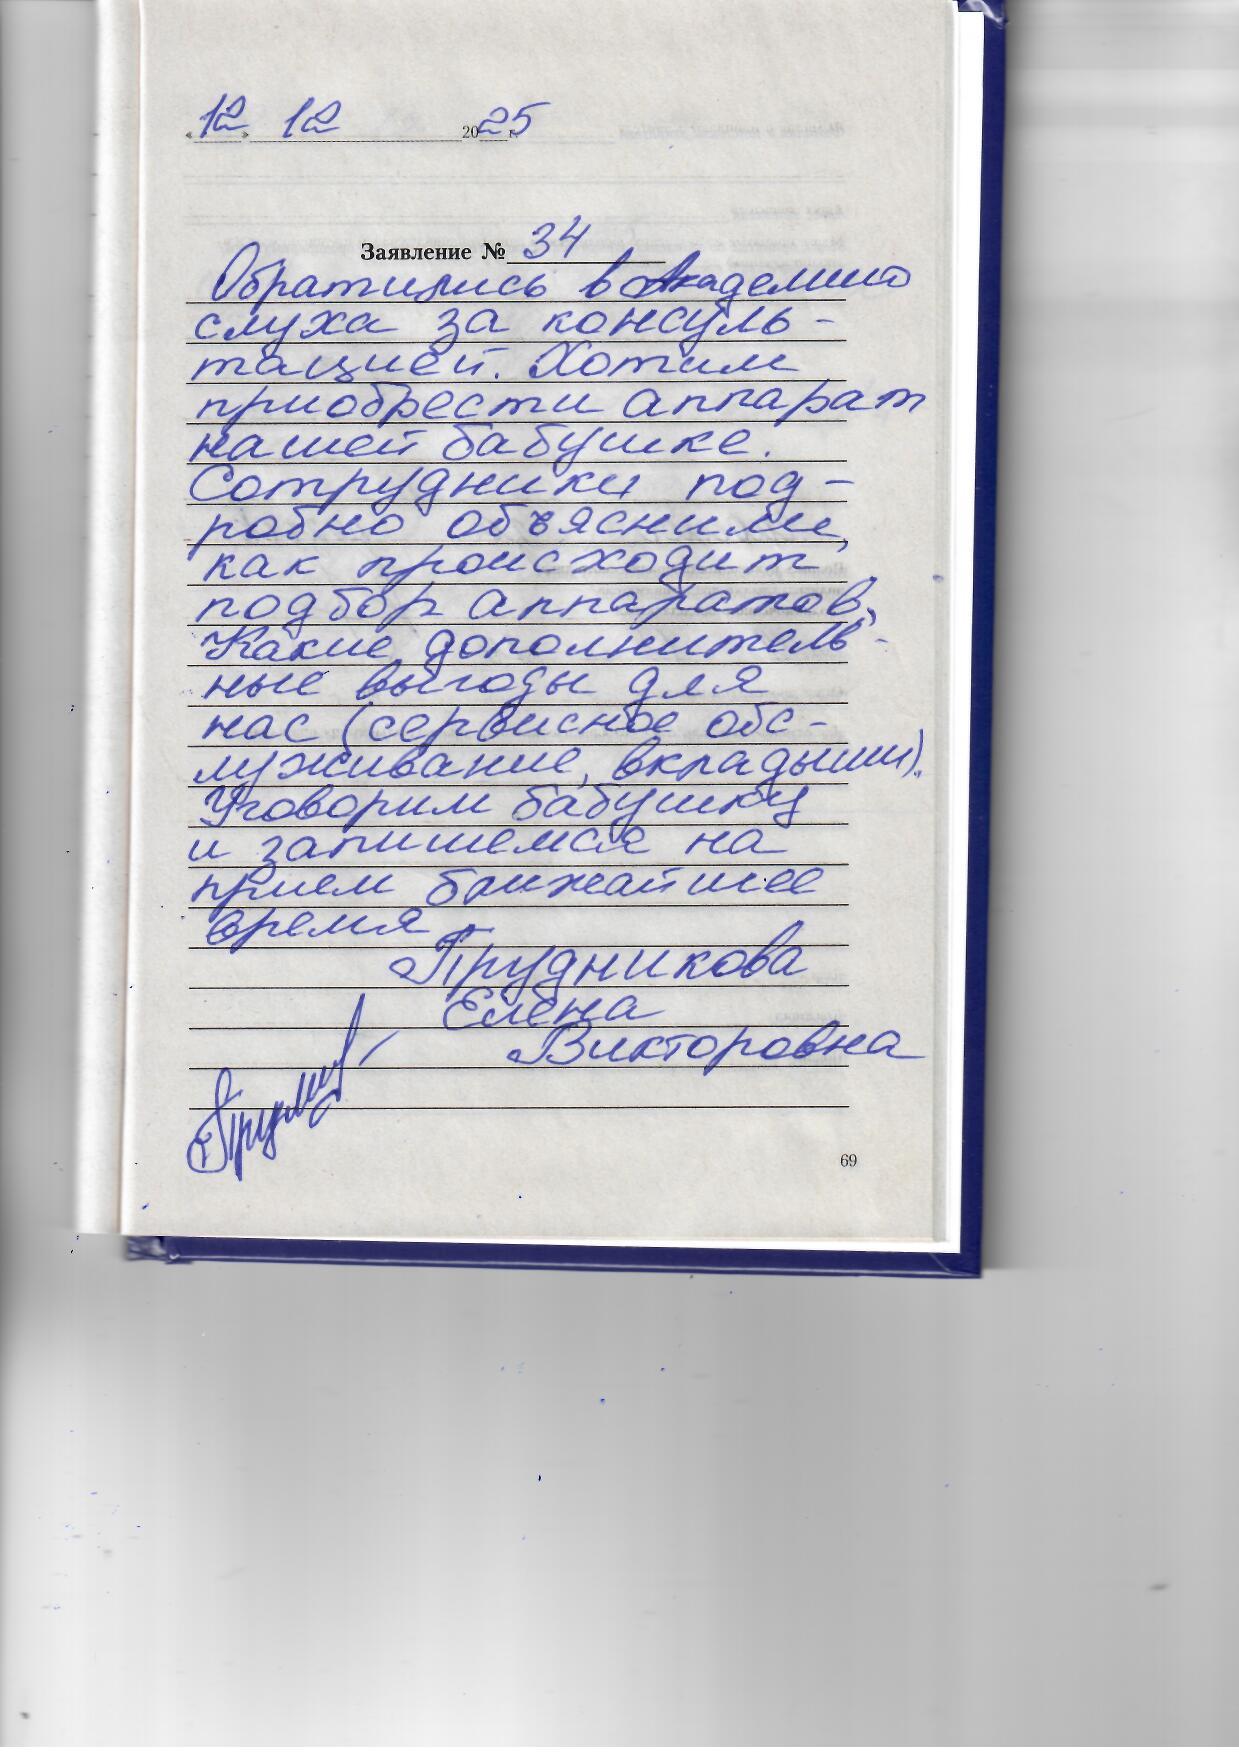 «12» 12 2025 г.
Заявление № 34
Обратились в Академию
слуха за консуль-
тацией. Хотим
приобрести аппарат
нашей бабушке.
Сотрудники под-
робно объяснили,
как происходит
подбор аппаратов,
Какие дополнитель-
ные выгоды для
нас (сервисное обс-
луживание, вкладыши).
Уговорим бабушку
и запишемся на
прием ближайшее
время
Трудникова
Елена
Викторовна
69